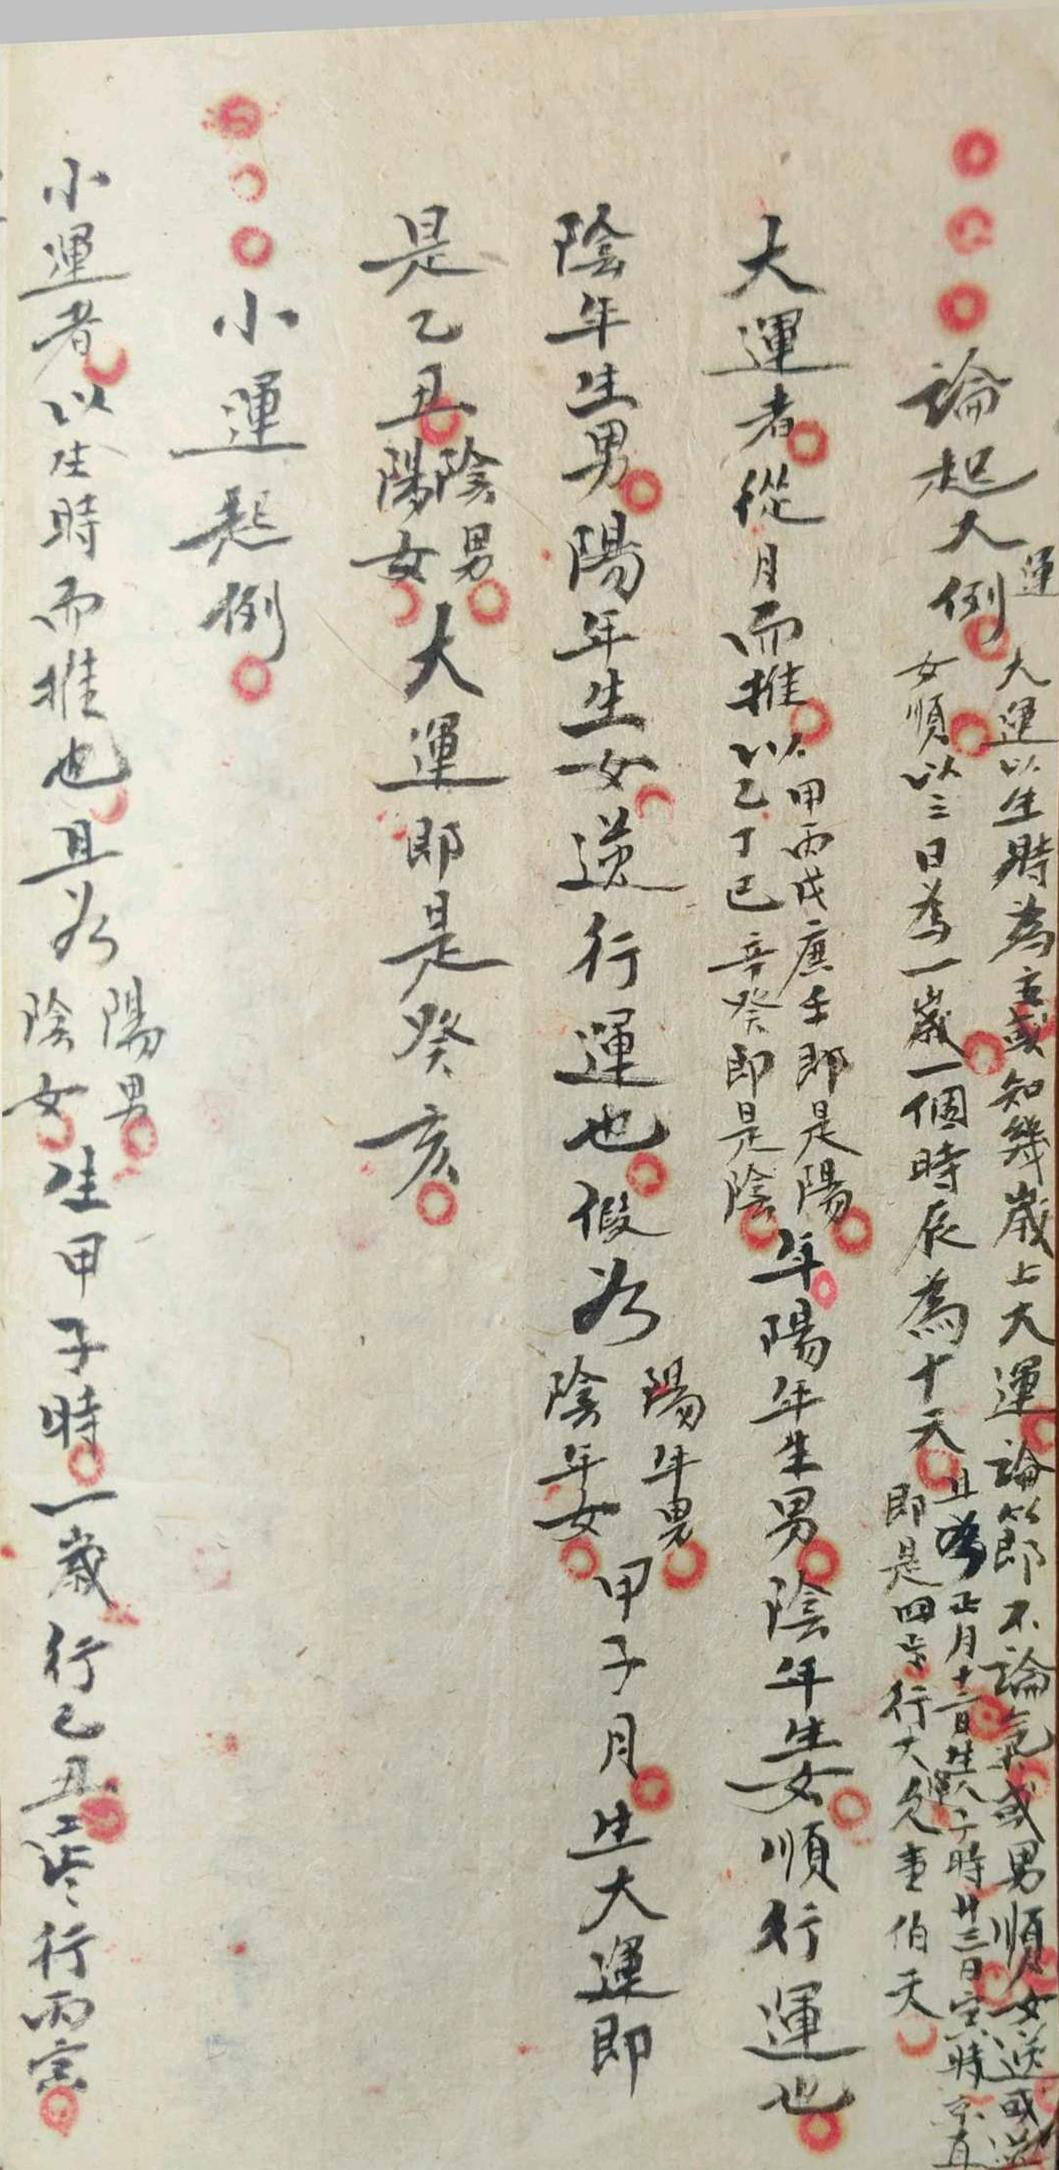 論起大運例
大運以生時為主或知幾歲上大運論節不論氣或男順女逆或逆
女順以三日為一歲一個時辰為十天
且為正月十二日生人子時廿三日
即是四歲行大欠壹伯天
大運者從月而推
以甲丙戊庚壬即是陽
以乙丁己辛癸即是陰
年陽年生男陰年生女順行運也
陰年生男陽年生女逆行運也假如
陽年男
陰年女
甲子月生大運即
是乙丑
陰男
陽女
大運即是癸亥
小運起例
小運者以生時而推也且如
陽男
陰女
生甲子時一歲行乙丑二歲行丙寅